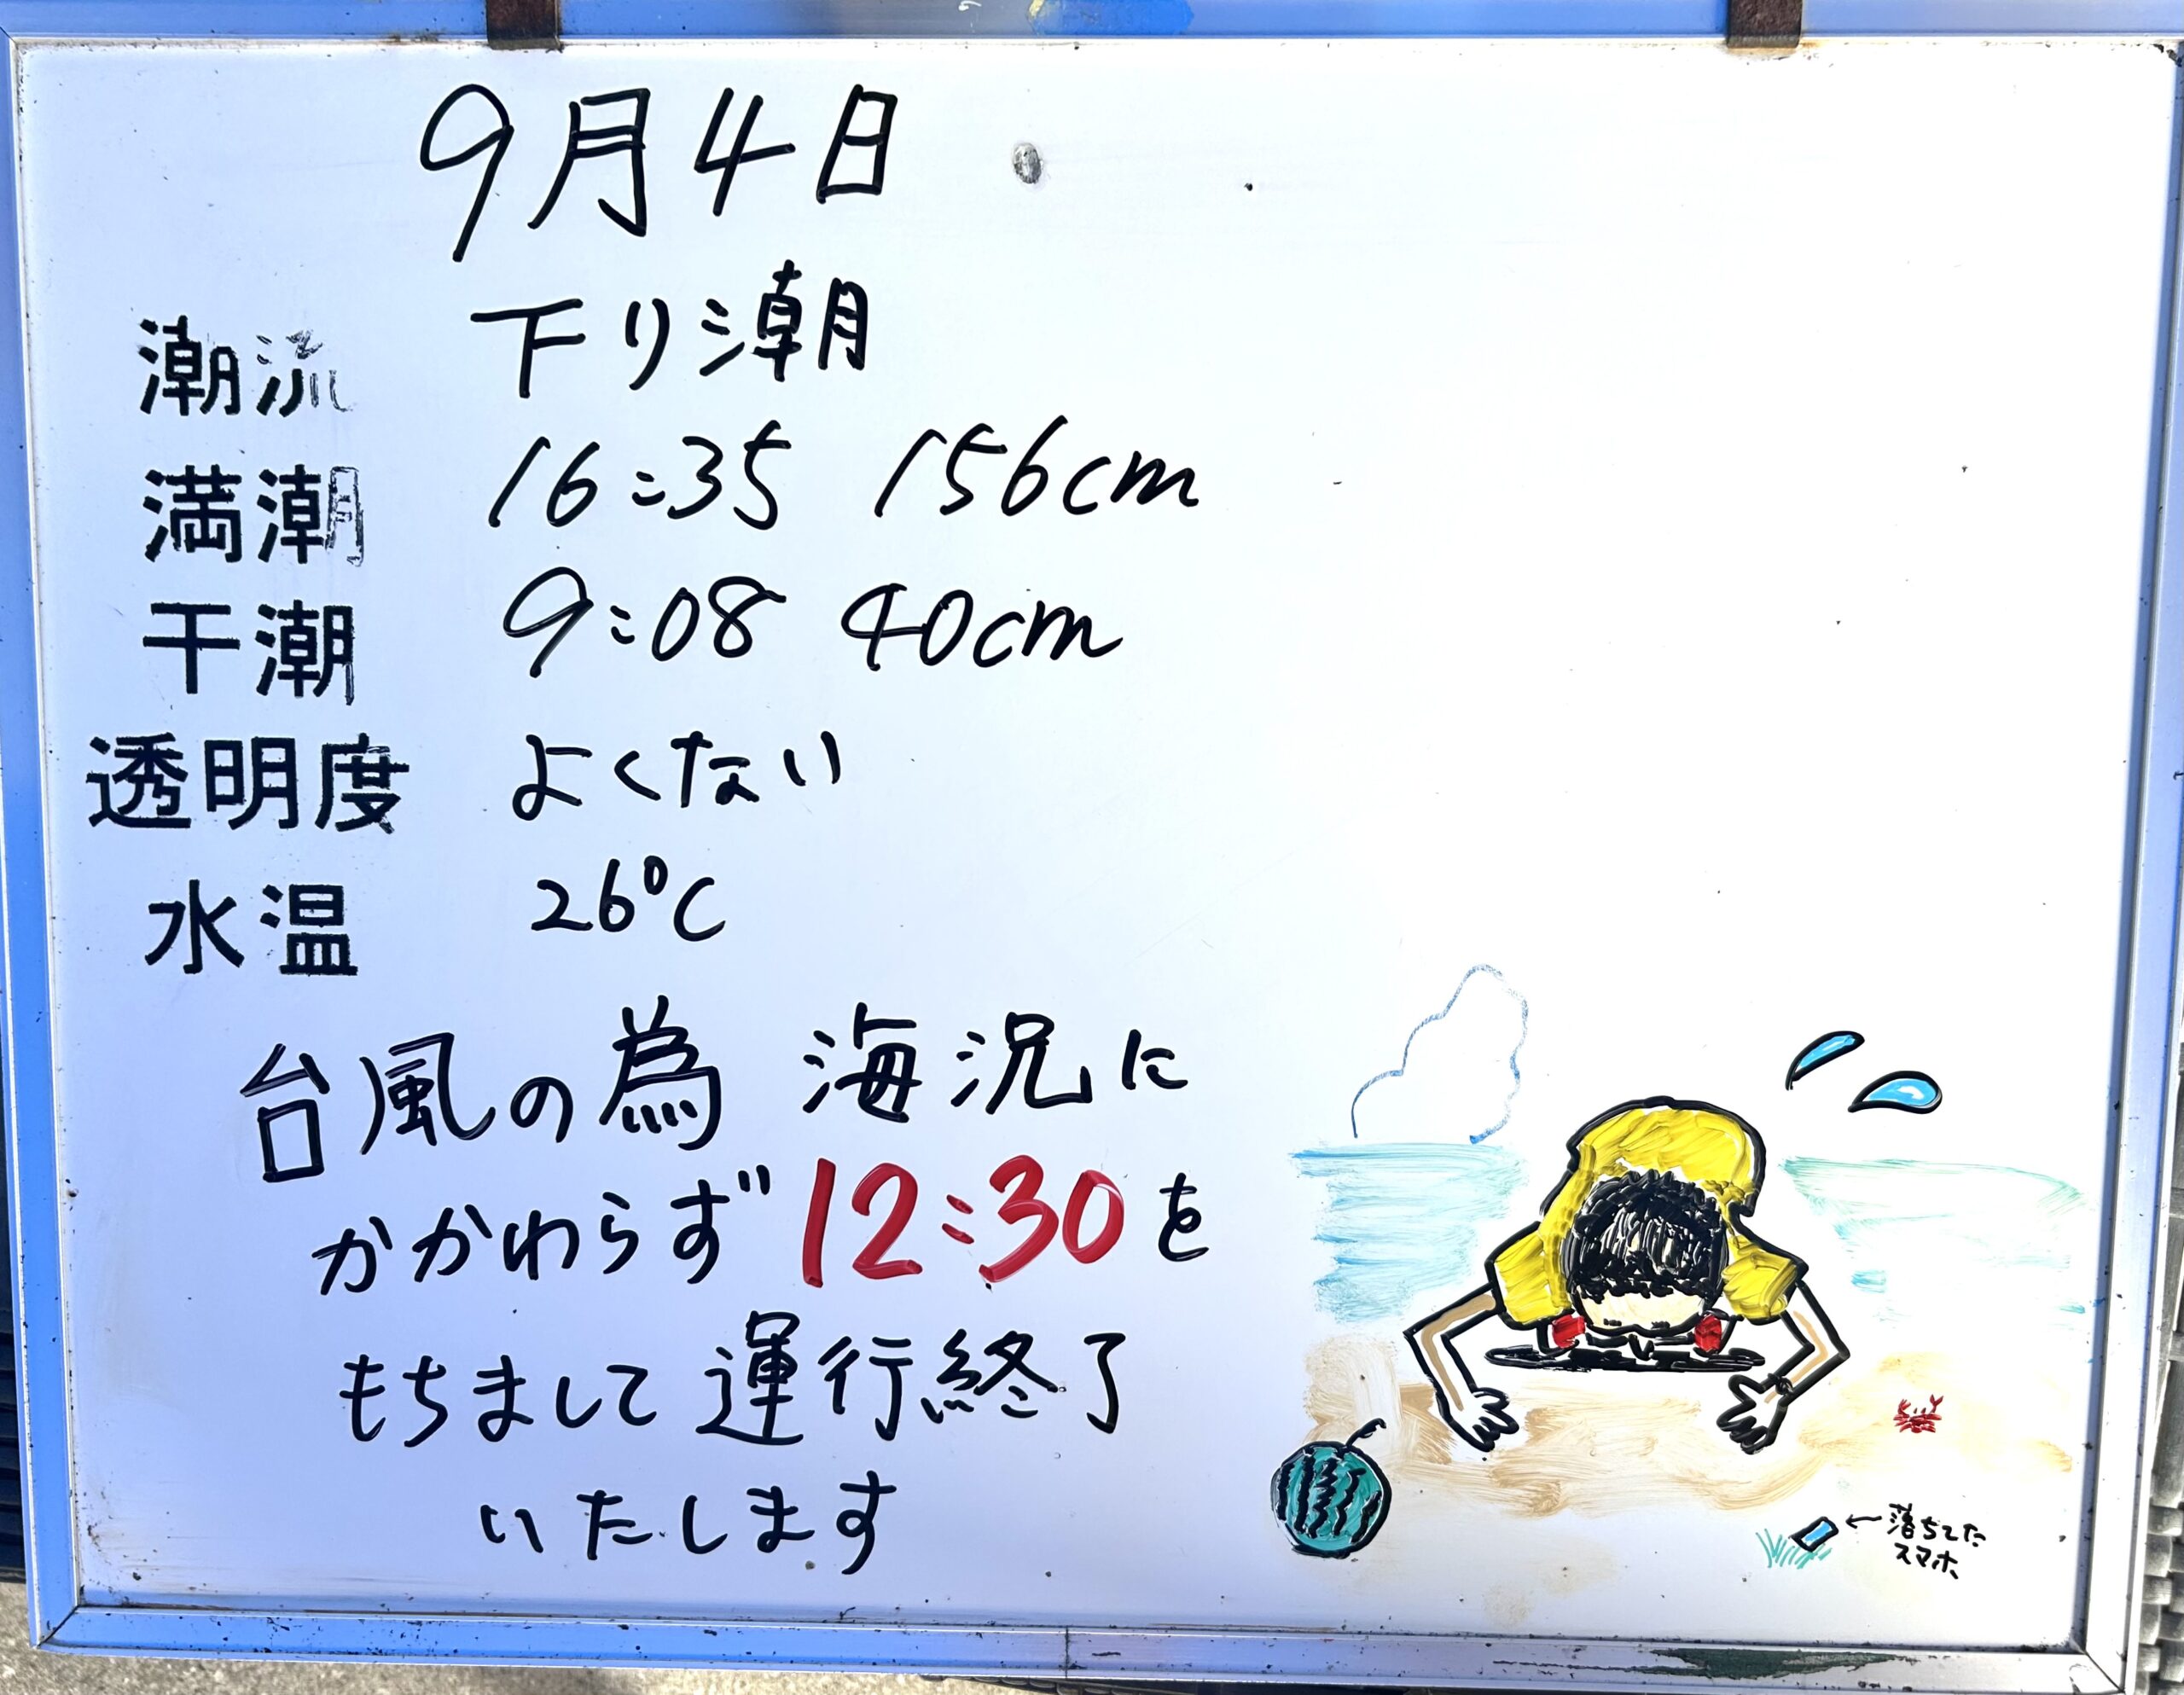 9月4日
潮流 下り潮
満潮 16:35 156cm
干潮 9:08 40cm
透明度 よくない
水温 26℃
台風の為 海況に
かかわらず 12:30を
もちまして 運行終了
いたします
←落ちてた
スマホ